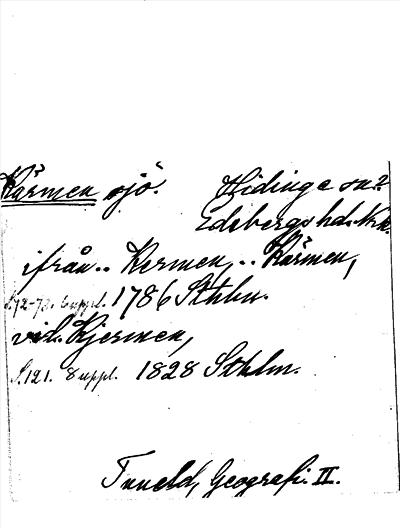 Kärmen sjö. Hidinge sn?
Edsbergs hd. Nrk.
ifrån.. Kermen, .. Kärmen,
S.72-73. 6 uppl. 1786 Sthlm.
vid. Kjermen,
S.121. 8 uppl. 1828 Sthlm.
Tuneld, Geografi. II.